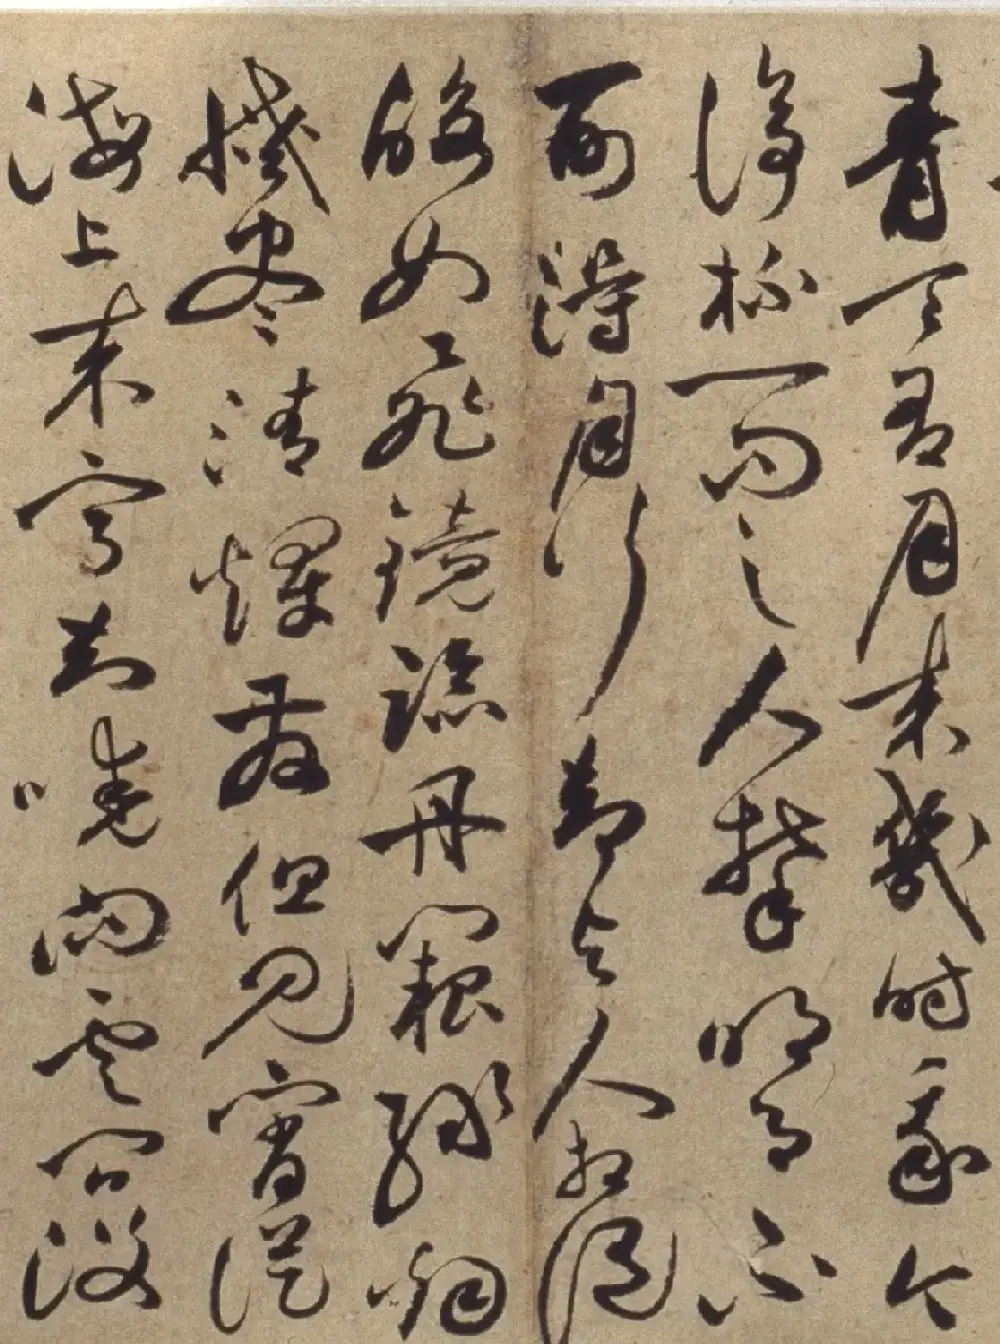 青天有月来幾時我今
停杯一問之人攀明月不
可得月行却與人相隨
皎如飛鏡臨丹闕緑烟
滅盡清煇發但見宵從
海上来寧知曉向雲間没